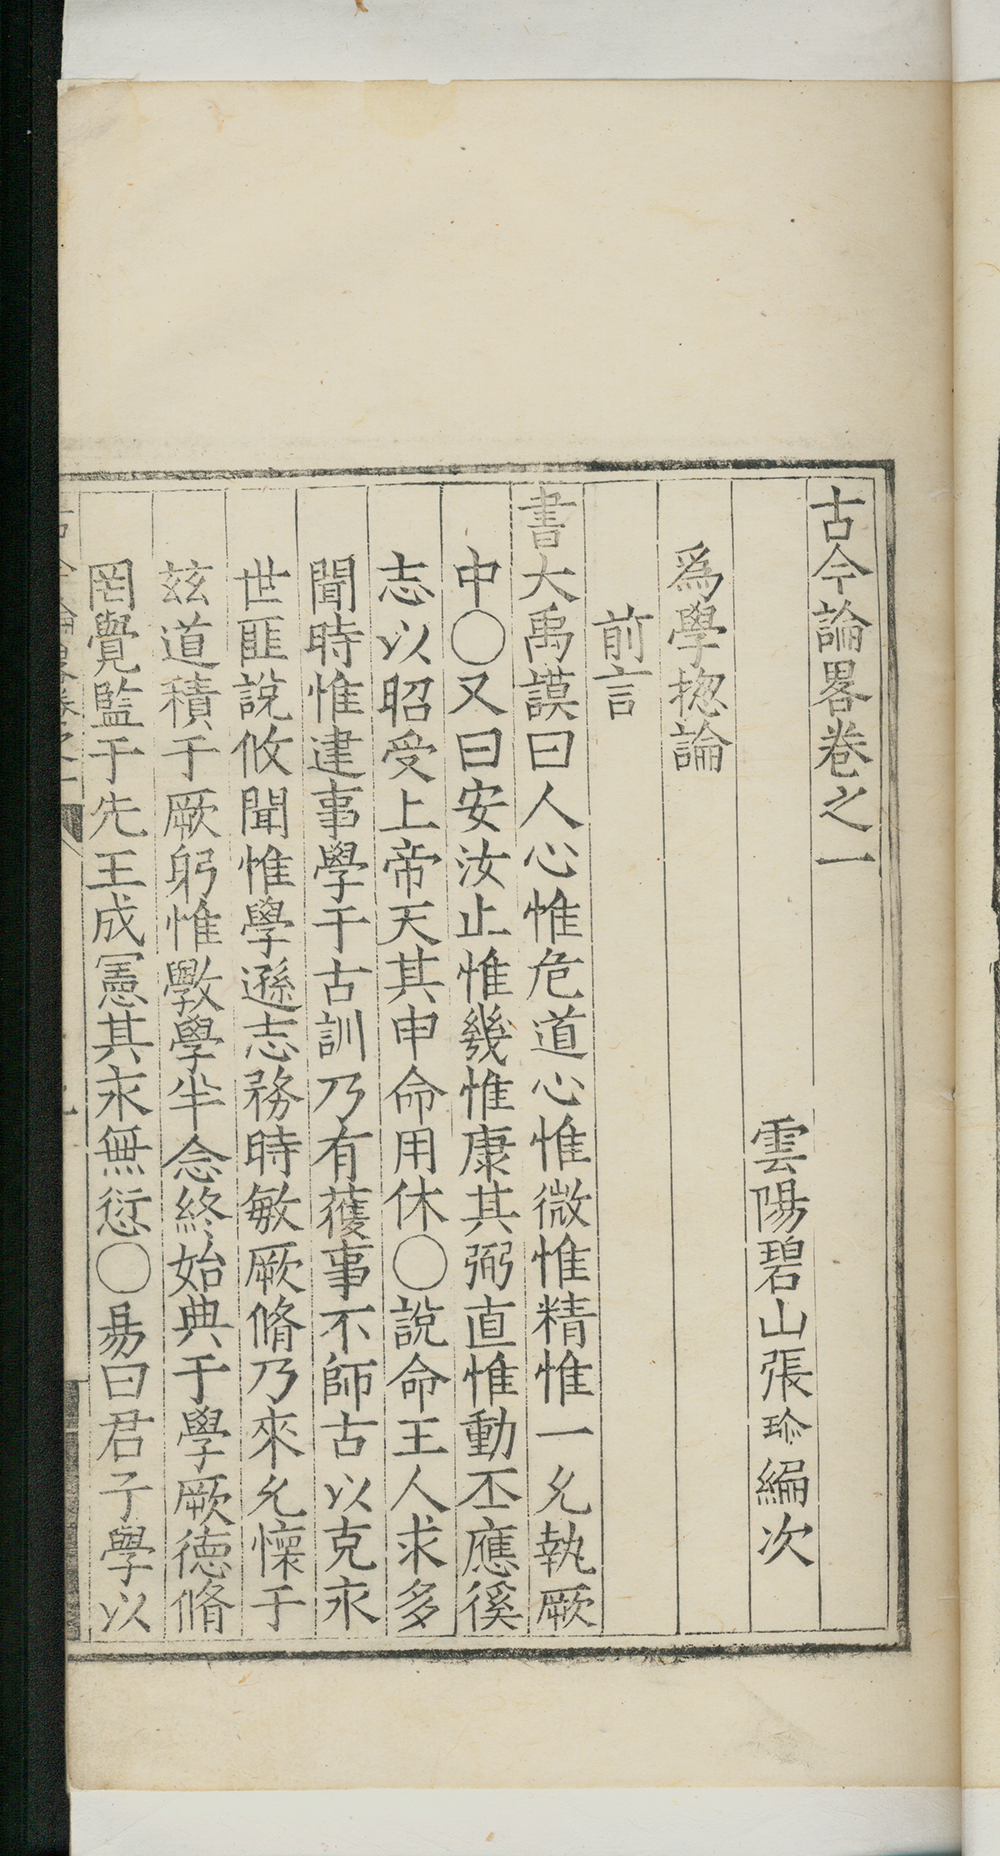 古今論畧卷之一
雲陽碧山張珍編次
爲學揔論
前言
書大禹謨曰人心惟危道心惟微惟精惟一允執厥
中〇又曰安汝止惟幾惟康其弼直惟動丕應徯
志以昭受上帝天其申命用休〇說命王人求多
聞時惟建事學于古訓乃有獲事不師古以克永
世匪說攸聞惟學遜志務時敏厥脩乃來允懷于
玆道積于厥躬惟斆學半念終始典于學厥德脩
罔覺監于先王成憲其永無愆〇易曰君子學以